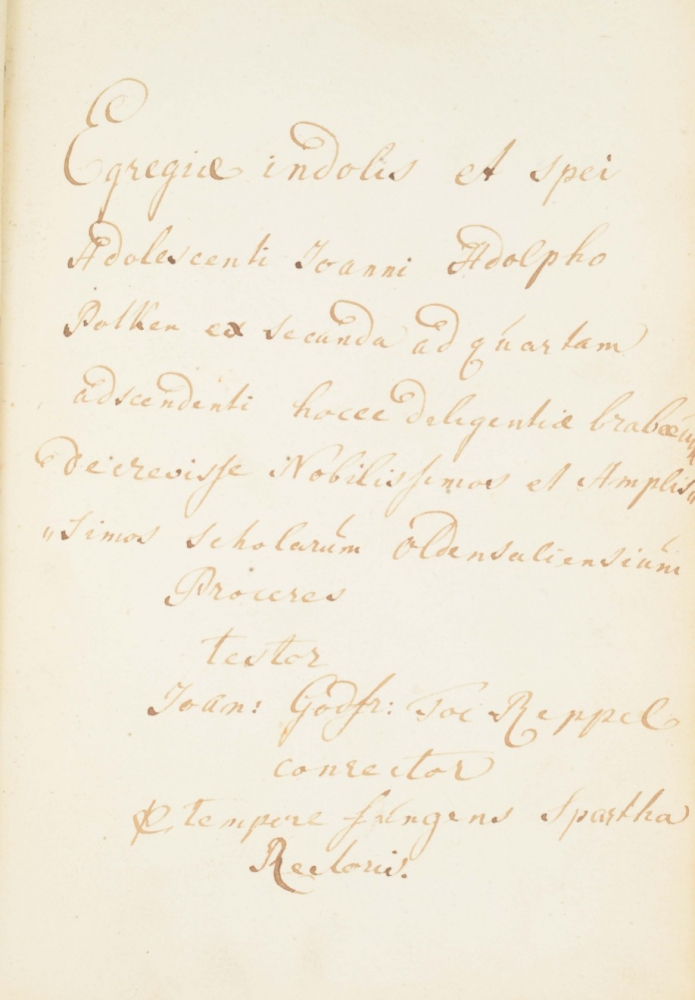 Egregiæ indolis et spei
Adolescenti Joanni Adolpho
Potken ex secunda ad quartam
adscendenti hocce deligentiæ brabæum
decrevisse Nobilissimos et Amplis„
„simos scholarum Oldensaliensium
Proceres
testor
Joan: Godfr: Toe Reppel
conrector
tempore fungens Spartha
Rectoris.